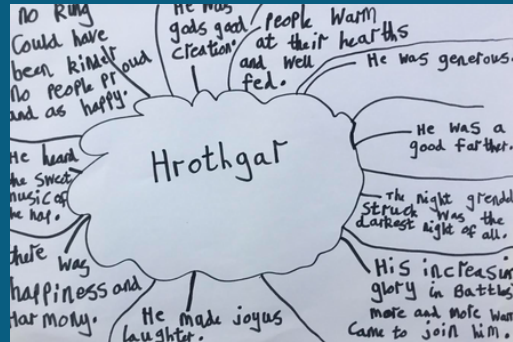 no King
Could have
been kinder
no people proud
and as happy.
He was
gods good
creation.
people warm
at their hearths
and well
fed.
He was generous.
He was a
good farther.
The night grendel
struck was the
darkest night of all.
His increasin
glory in Battles
more and more
came to join him.
He made joyus
laughter.
there was
happiness and
Harmony.
He heard
the sweet
music of
he hap.
Hrothgar